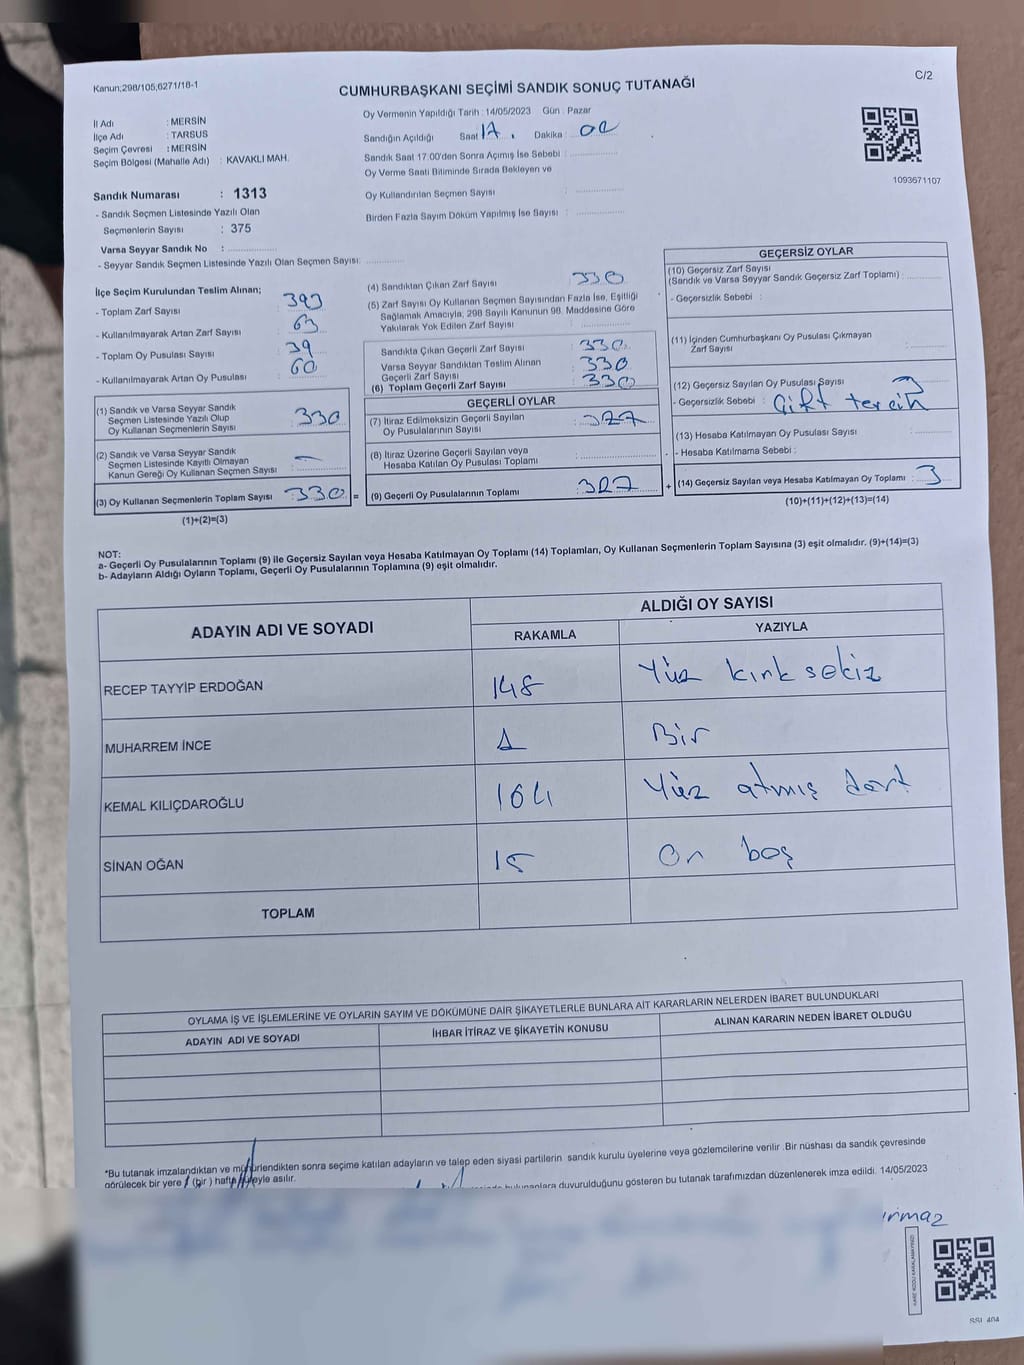 Kanun;298/105;6271/18-1
C/2
CUMHURBAŞKANI SEÇİMİ SANDIK SONUÇ TUTANAĞI
İl Adı : MERSİN
İlçe Adı : TARSUS
Seçim Çevresi : MERSİN
Seçim Bölgesi (Mahalle Adı) : KAVAKLI MAH.
Sandık Numarası : 1313
- Sandık Seçmen Listesinde Yazılı Olan
Seçmenlerin Sayısı : 375
Varsa Seyyar Sandık No :
- Seyyar Sandık Seçmen Listesinde Yazılı Olan Seçmen Sayısı:
Oy Vermenin Yapıldığı Tarih : 14/05/2023 Gün : Pazar
Sandığın Açıldığı Saat 17. Dakika : 02
Sandık Saat 17:00'den Sonra Açımış İse Sebebi :
Oy Verme Saati Bitiminde Sırada Bekleyen ve
Oy Kullandırılan Seçmen Sayısı :
Birden Fazla Sayım Döküm Yapılmış İse Sayısı :
1093671107
İlçe Seçim Kurulundan Teslim Alınan;
- Toplam Zarf Sayısı : 393
- Kullanılmayarak Artan Zarf Sayısı : 63
- Toplam Oy Pusulası Sayısı : 39
- Kullanılmayarak Artan Oy Pusulası : 60
(1) Sandık ve Varsa Seyyar Sandık
Seçmen Listesinde Yazılı Olup
Oy Kullanan Seçmenlerin Sayısı : 330
(2) Sandık ve Varsa Seyyar Sandık
Seçmen Listesinde Kayıtlı Olmayan
Kanun Gereği Oy Kullanan Seçmen Sayısı : -
(3) Oy Kullanan Seçmenlerin Toplam Sayısı : 330 =
(1)+(2)=(3)
(4) Sandıktan Çıkan Zarf Sayısı : 330
(5) Zarf Sayısı Oy Kullanan Seçmen Sayısından Fazla İse, Eşitliği
Sağlamak Amacıyla, 298 Sayılı Kanunun 98. Maddesine Göre
Yakılarak Yok Edilen Zarf Sayısı :
Sandıkta Çıkan Geçerli Zarf Sayısı : 330
Varsa Seyyar Sandıktan Teslim Alınan
Geçerli Zarf Sayısı : 330
(6) Toplam Geçerli Zarf Sayısı : 330
GEÇERLİ OYLAR
(7) İtiraz Edilmeksizin Geçerli Sayılan
Oy Pusulalarının Sayısı : 327
(8) İtiraz Üzerine Geçerli Sayılan veya
Hesaba Katılan Oy Pusulası Toplamı :
(9) Geçerli Oy Pusulalarının Toplamı : 327 +
GEÇERSİZ OYLAR
(10) Geçersiz Zarf Sayısı
(Sandık ve Varsa Seyyar Sandık Geçersiz Zarf Toplamı) :
- Geçersizlik Sebebi :
(11) İçinden Cumhurbaşkanı Oy Pusulası Çıkmayan
Zarf Sayısı :
(12) Geçersiz Sayılan Oy Pusulası Sayısı : 3
- Geçersizlik Sebebi : Çift tercih
(13) Hesaba Katılmayan Oy Pusulası Sayısı :
- Hesaba Katılmama Sebebi :
(14) Geçersiz Sayılan veya Hesaba Katılmayan Oy Toplamı : 3
(10)+(11)+(12)+(13)=(14)
NOT:
a- Geçerli Oy Pusulalarının Toplamı (9) ile Geçersiz Sayılan veya Hesaba Katılmayan Oy Toplamı (14) Toplamları, Oy Kullanan Seçmenlerin Toplam Sayısına (3) eşit olmalıdır. (9)+(14)=(3)
b- Adayların Aldığı Oyların Toplamı, Geçerli Oy Pusulalarının Toplamına (9) eşit olmalıdır.
ADAYIN ADI VE SOYADI
ALDIĞI OY SAYISI
RAKAMLA YAZIYLA
RECEP TAYYİP ERDOĞAN 148 Yüz kırk sekiz
MUHARREM İNCE 1 Bir
KEMAL KILIÇDAROĞLU 164 Yüz atmış dört
SİNAN OĞAN 15 On beş
TOPLAM
OYLAMA İŞ VE İŞLEMLERİNE VE OYLARIN SAYIM VE DÖKÜMÜNE DAİR ŞİKAYETLERLE BUNLARA AİT KARARLARIN NELERDEN İBARET BULUNDUKLARI
ADAYIN ADI VE SOYADI İHBAR İTİRAZ VE ŞİKAYETİN KONUSU ALINAN KARARIN NEDEN İBARET OLDUĞU
*Bu tutanak imzalandıktan ve mühürlendikten sonra seçime katılan adayların ve talep eden siyasi partilerin sandık kurulu üyelerine veya gözlemcilerine verilir .Bir nüshası da sandık çevresinde
görülecek bir yere 1 (bir ) hafta süreyle asılır.
bulunanlara duyurulduğunu gösteren bu tutanak tarafımızdan düzenlenerek imza edildi. 14/05/2023
ırmaz